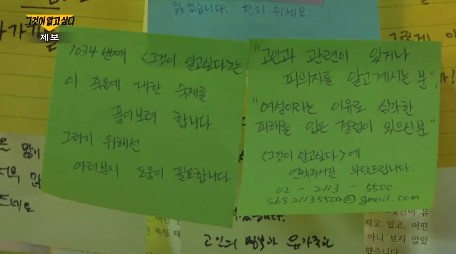 그것이 알고싶다
제보
있겠습니다.
쉬세요.
1034 번째 <그것이 알고싶다>는
이 죽음에 대한 숙제를
풀어보려 합니다.
그러기 위해선
여러분의 도움이 필요합니다.
"고인과 관련이 있거나
피의자를 알고계시는 분",
"여성이라는 이유로 심각한
피해를 입은 경험이 있으신분"
<그것이 알고싶다>에
연락주시길 부탁드립니다.
02 - 2113 - 5500
sbs21135500@gmail.com
고인의 명복과 유가족의